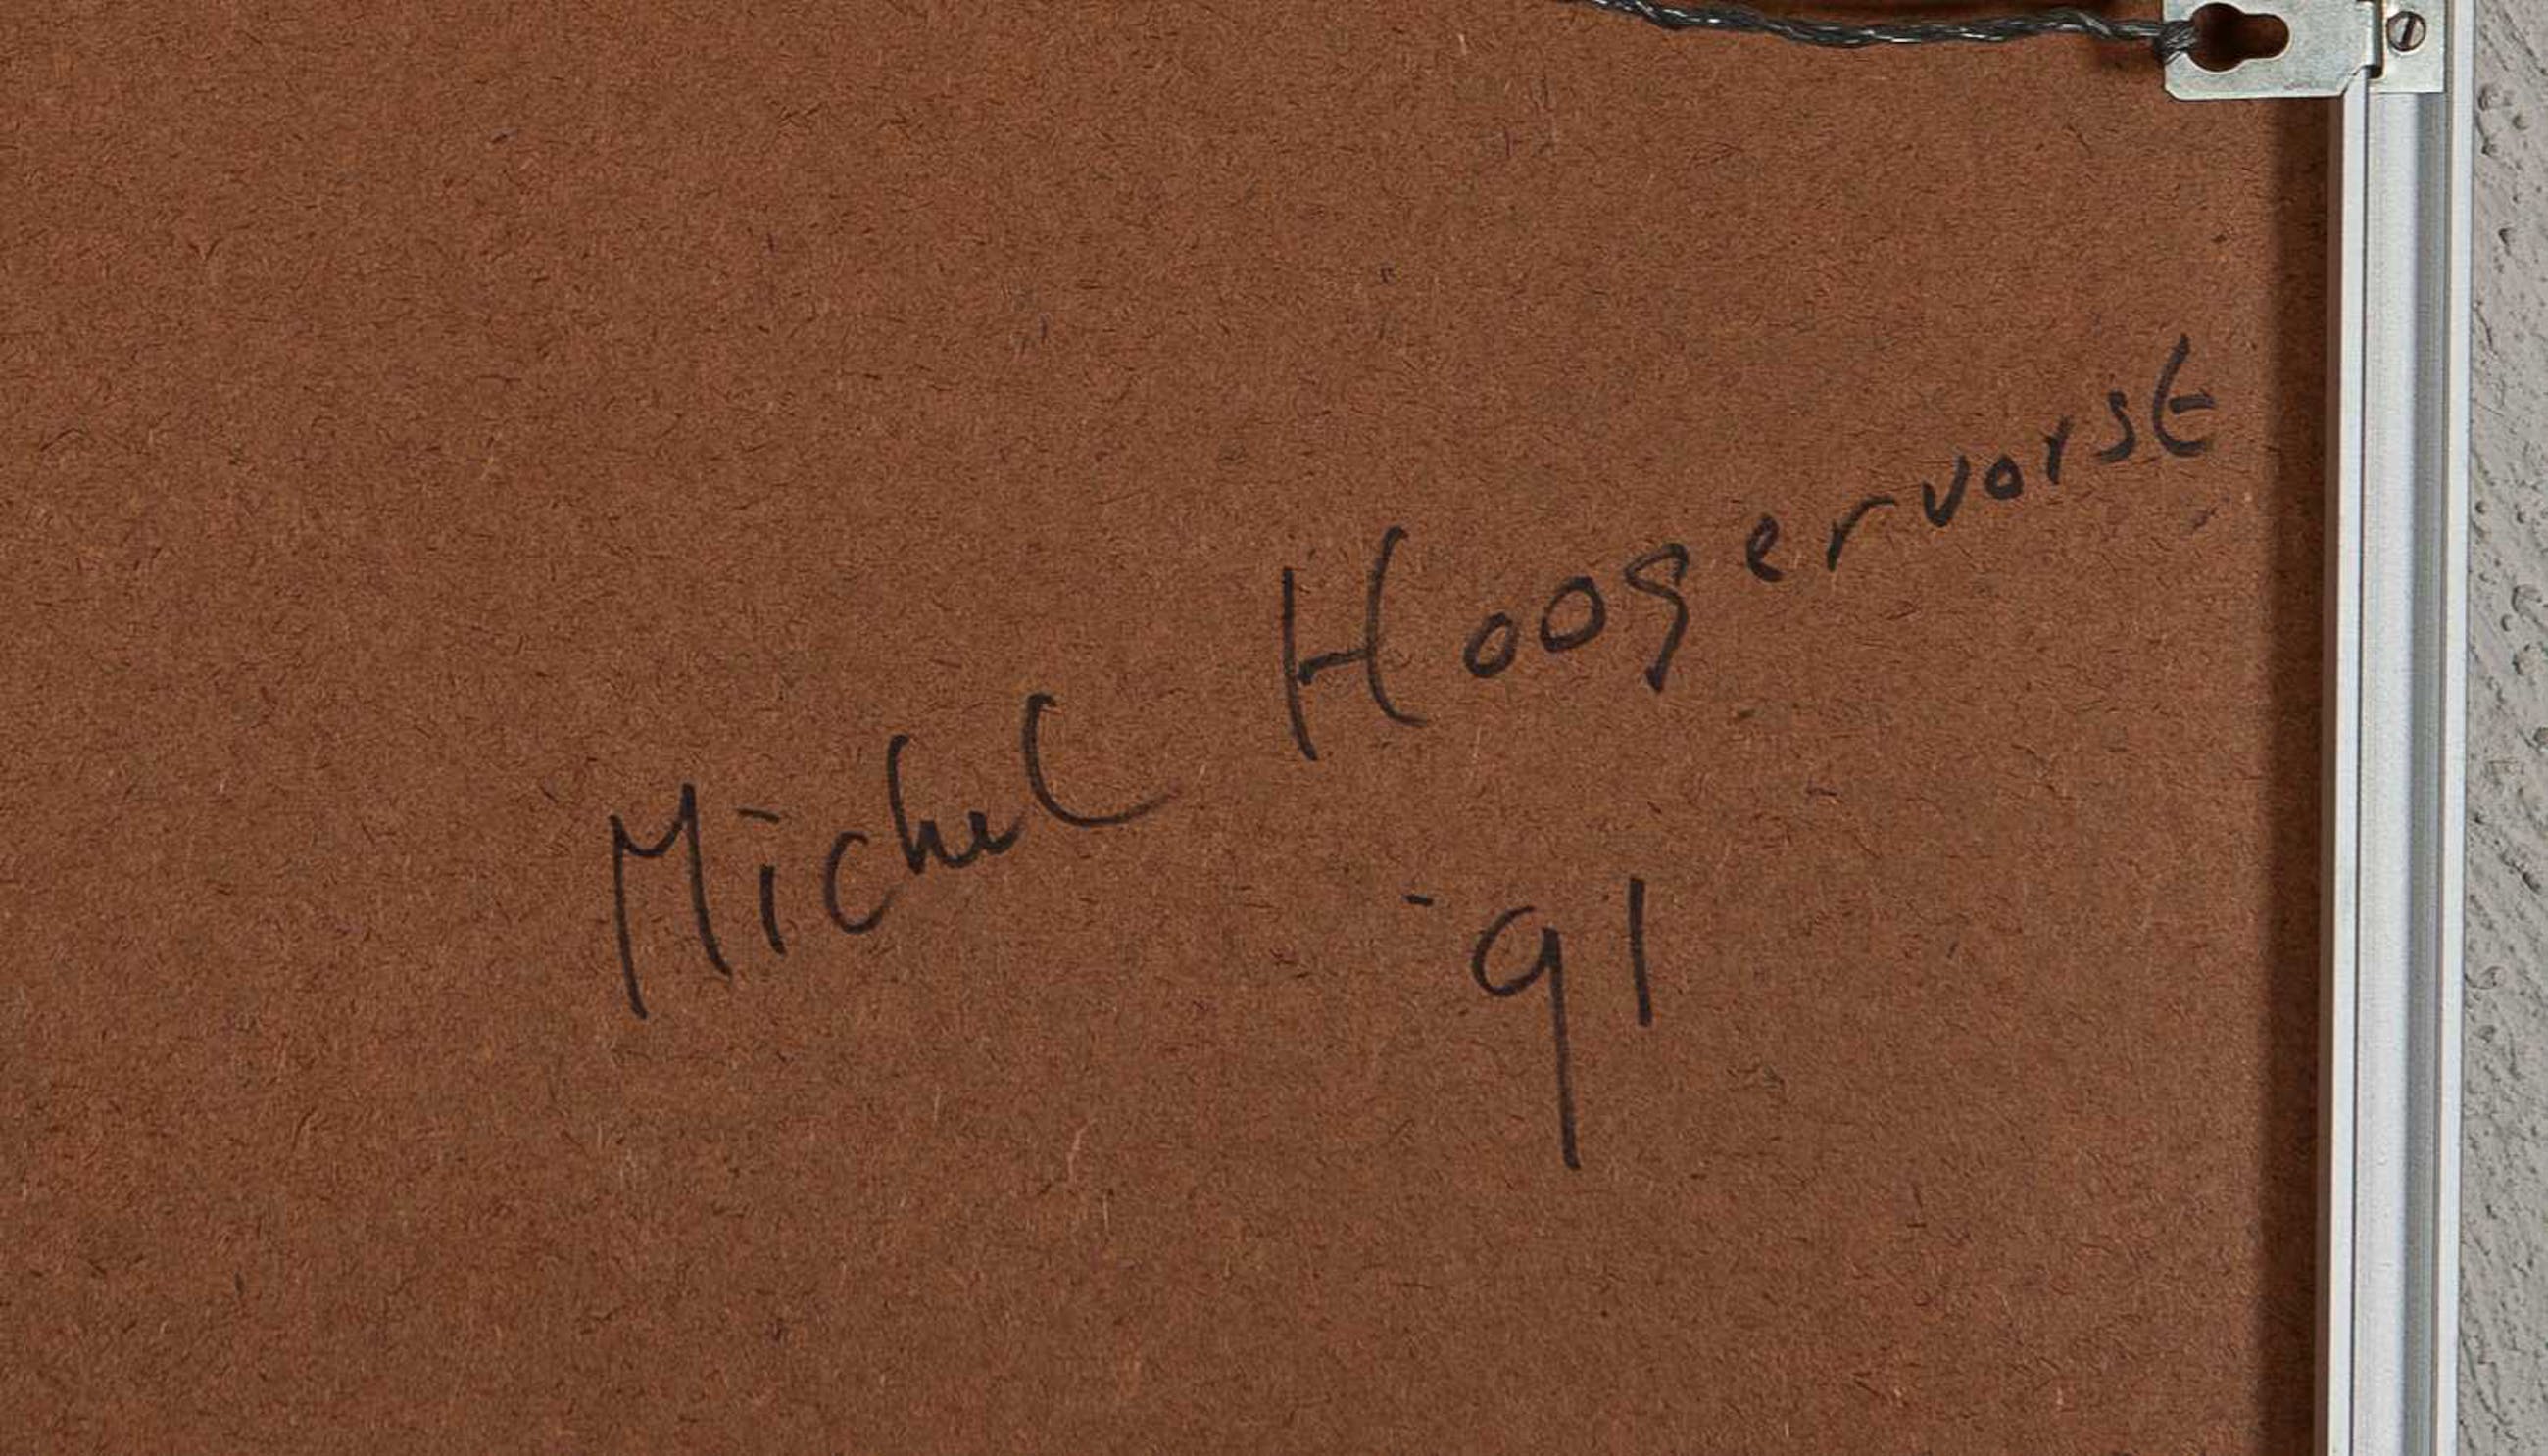 Michel Hoogervorst
'91